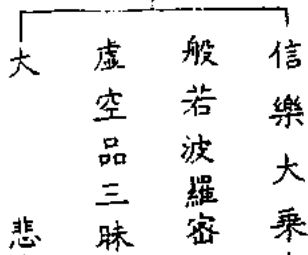 信樂大乗
般若波羅密
虛空品三昧
大悲